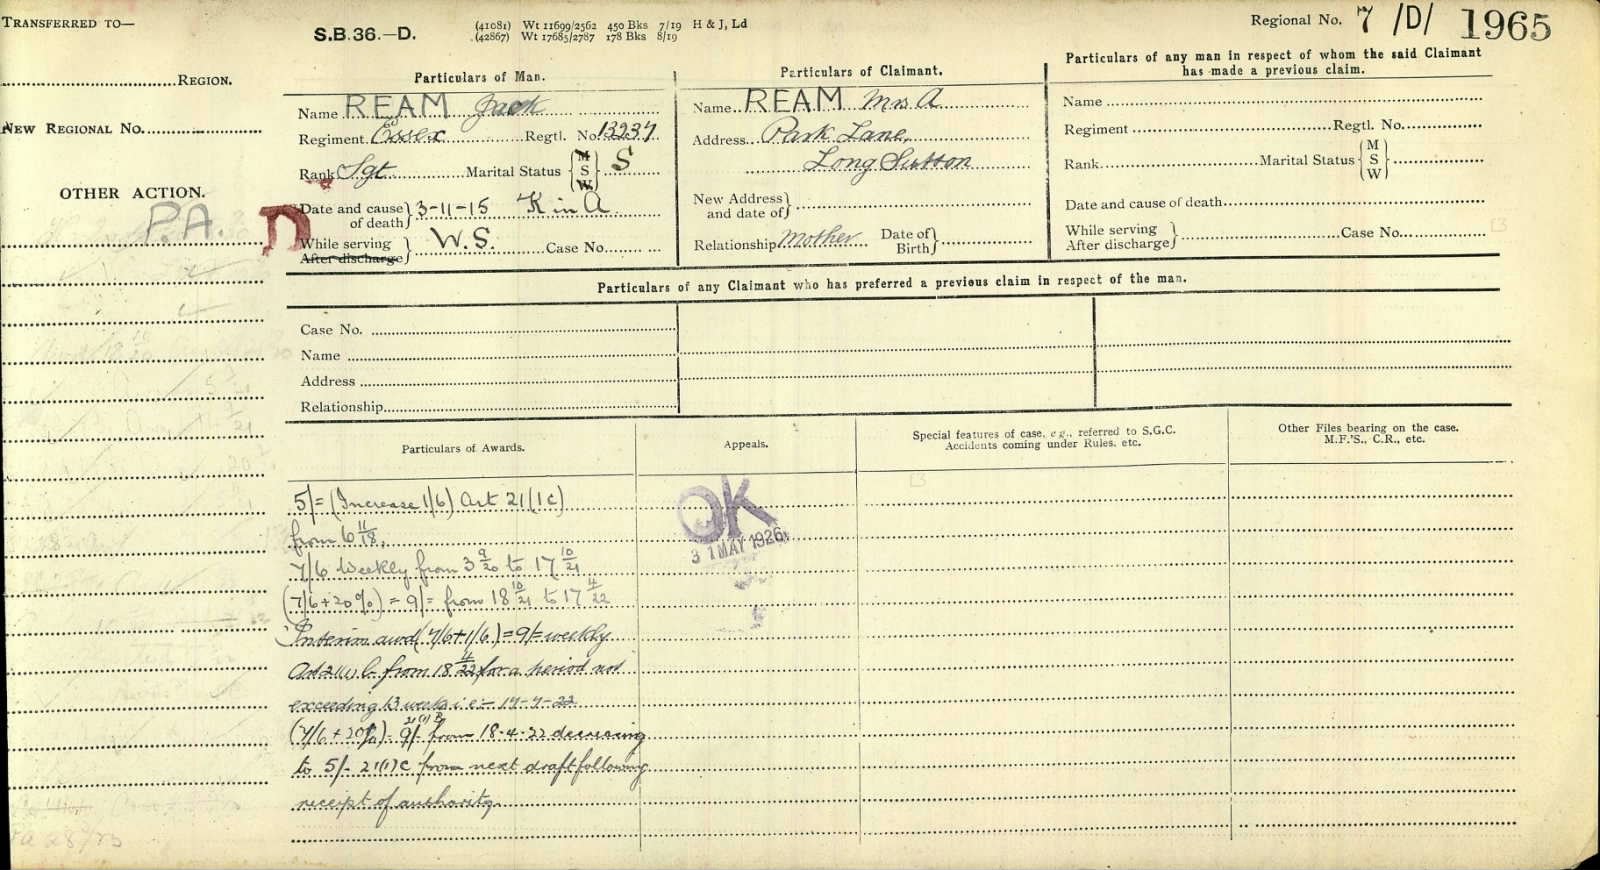 TRANSFERRED TO—
REGION.
NEW REGIONAL NO.
OTHER ACTION.
P.A.
S.B.36.—D.
(41081) Wt 11699/2562 450 Bks 7/19 H & J, Ld
(42867) Wt 17685/2787 178 Bks 8/19
Regional No. 7 /D/ 1965
Particulars of Man.
Name REAM Jack
Regiment Essex Regtl. No. 13237
Rank Sgt Marital Status { M S W } S
Date and cause of death } 3-11-15 K in A
D
While serving
After discharge } W.S. Case No.
Particulars of Claimant.
Name REAM Mrs A
Address Park Lane,
Long Sutton
New Address and date of }
Relationship Mother Date of Birth }
Particulars of any man in respect of whom the said Claimant
has made a previous claim.
Name
Regiment Regtl. No.
Rank Marital Status { M S W }
Date and cause of death
While serving
After discharge } Case No.
Particulars of any Claimant who has preferred a previous claim in respect of the man.
Case No.
Name
Address
Relationship
Particulars of Awards.
Appeals.
Special features of case, e.g., referred to S.G.C.
Accidents coming under Rules, etc.
Other Files bearing on the case.
M.F.'S., C.R., etc.
5/= (Increase 1/6) Art 21(1c)
from 6 11/18.
7/6 Weekly from 3 9/20 to 17 10/21
(7/6 + 20%) = 9/= from 18 10/21 to 17 4/22
Interim awd (7/6 + 1/6) = 9/= weekly
Art 21(1) b from 18 4/22 for a period not
exceeding 13 weeks i.e = 17-7-22
(7/6 + 20%) = 9/- 21(1)B from 18.4.22 decreasing
to 5/- 21(1)C from next draft following
receipt of authority.
OK
31 MAY 1926